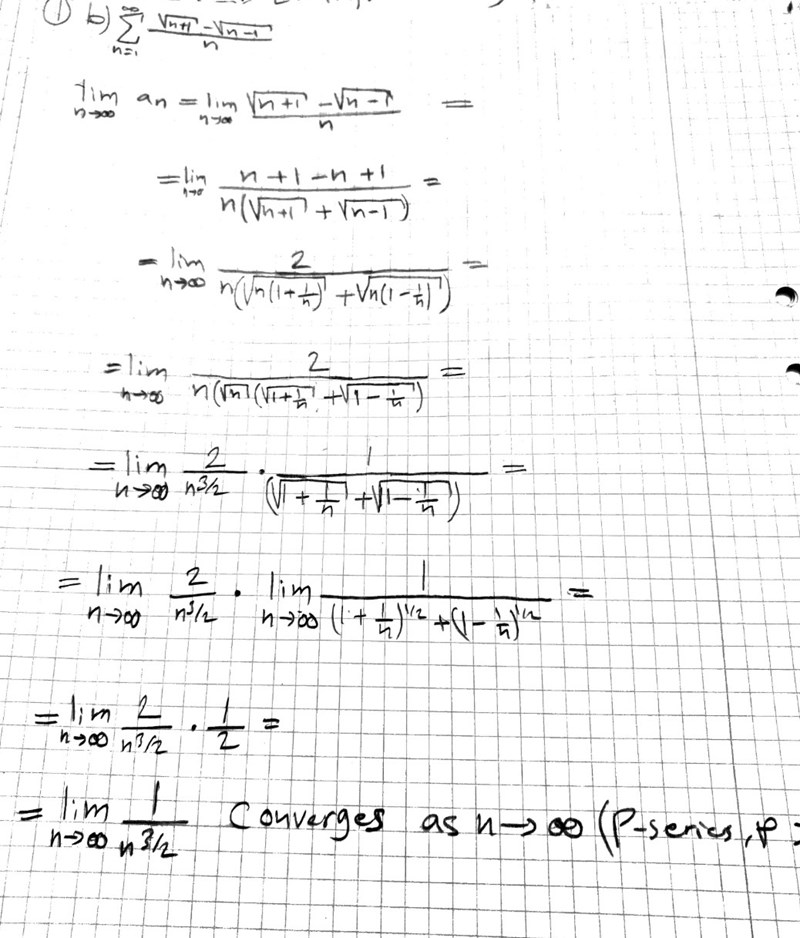 ① b) ∑_{n=1}^{∞} (√(n+1) - √(n-1))/n
lim_{n→∞} a_n = lim_{n→∞} (√(n+1) - √(n-1))/n =
= lim_{n→∞} (n+1-n+1)/(n(√(n+1) + √(n-1))) =
= lim_{n→∞} 2/(n(√(n(1+1/n)) + √(n(1-1/n)))) =
= lim_{n→∞} 2/(n(√n (√(1+1/n) + √(1-1/n))) =
= lim_{n→∞} 2/n^{3/2} · 1/(√(1+1/n) + √(1-1/n)) =
= lim_{n→∞} 2/n^{3/2} · lim_{n→∞} 1/((1+1/n)^{1/2} + (1-1/n)^{1/2}) =
= lim_{n→∞} 2/n^{3/2} · 1/2 =
= lim_{n→∞} 1/n^{3/2} Converges as n→∞ (P-series, p